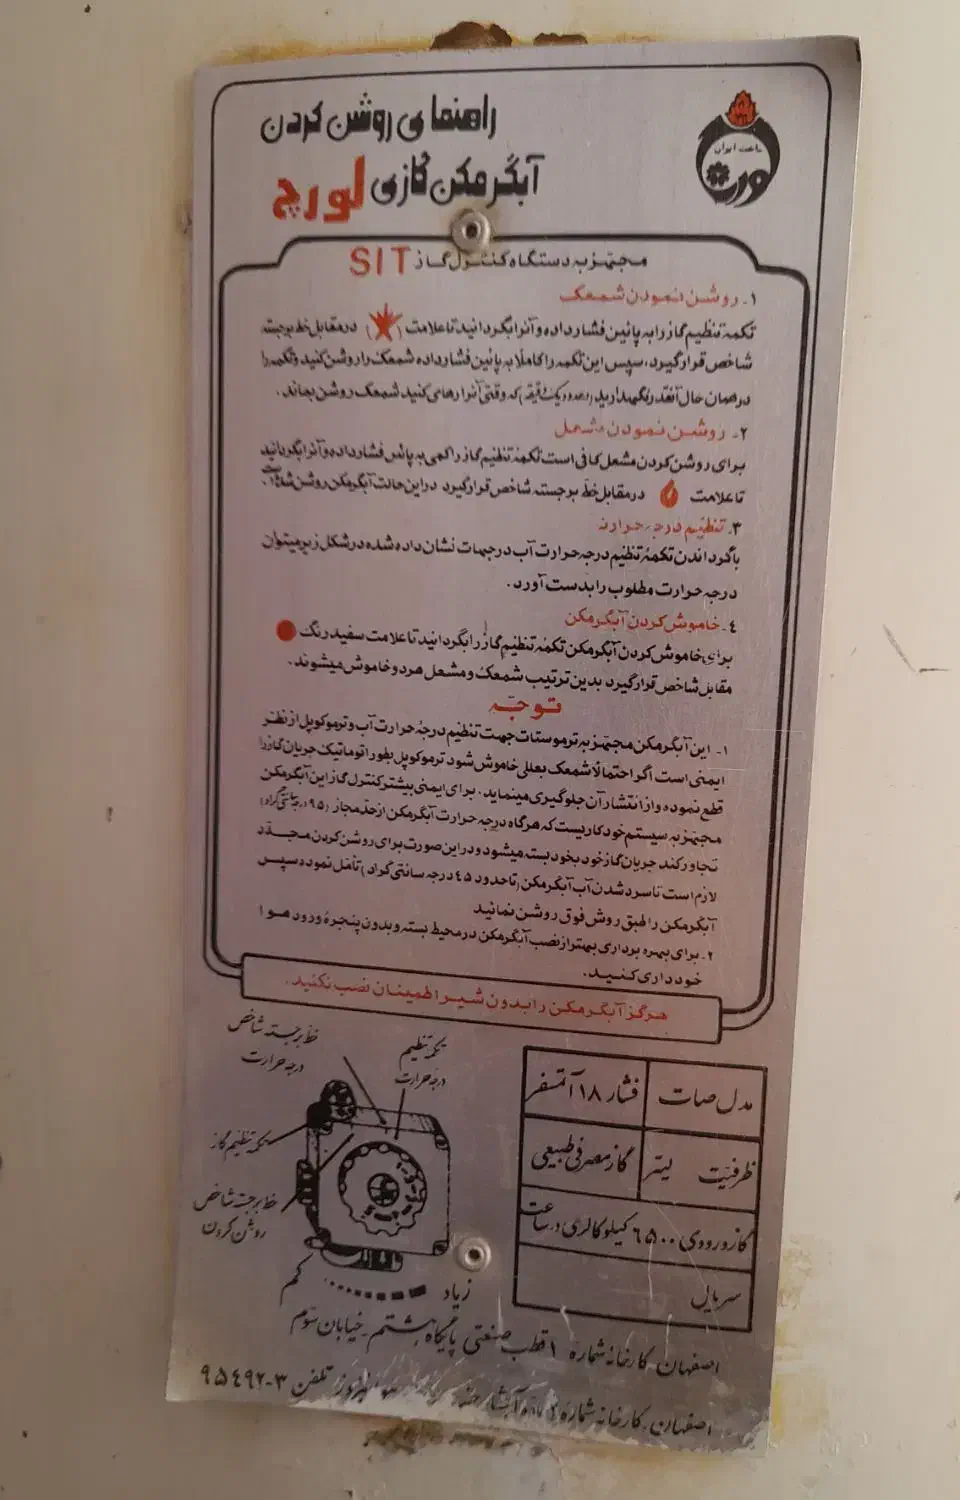 راهنمای روشن کردن
آبگرمکن گازی لورچ
ساخت ایران
لورچ
مجهز به دستگاه کنترل گاز SIT
۱- روشن نمودن شمعک
تکمه تنظیم گاز را به پائین فشار داده و آنرا بگردانید تا علامت ( ) در مقابل خط برجسته
شاخص قرار گیرد، سپس این تکمه را کاملاً به پائین فشار داده شمعک را روشن کنید و تکمه را
در همان حال آنقدر نگهدارید (حدود یک دقیقه) که وقتی آنرا رها می کنید شمعک روشن بماند.
۲- روشن نمودن مشعل
برای روشن کردن مشعل کافی است تکمه تنظیم گاز را کمی به پائین فشار داده و آنرا بگردانید
تا علامت در مقابل خط برجسته شاخص قرار گیرد در این حالت آبگرمکن روشن شده است.
۳- تنظیم درجه حرارت
با گرداندن تکمه تنظیم درجه حرارت آب در جهات نشان داده شده در شکل زیر میتوان
درجه حرارت مطلوب را بدست آورد.
٤- خاموش کردن آبگرمکن
برای خاموش کردن آبگرمکن تکمه تنظیم گاز را بگردانید تا علامت سفید رنگ
مقابل شاخص قرار گیرد بدین ترتیب شمعک و مشعل هر دو خاموش میشوند.
توجه
۱- این آبگرمکن مجهز به ترموستات جهت تنظیم درجه حرارت آب و ترموکوپل از نظر
ایمنی است اگر احتمالاً شمعک بعللی خاموش شود ترموکوپل بطور اتوماتیک جریان گاز را
قطع نموده و از انتشار آن جلوگیری مینماید. برای ایمنی بیشتر کنترل گاز این آبگرمکن
مجهز به سیستم خودکاریست که هرگاه درجه حرارت آبگرمکن از حد مجاز (۹۵ درجه سانتی گراد)
تجاوز کند جریان گاز خود بخود بسته میشود و در این صورت برای روشن کردن مجدد
لازم است تا سرد شدن آب آبگرمکن (تا حدود ٤۵ درجه سانتی گراد) تأمل نموده سپس
آبگرمکن را طبق روش فوق روشن نمائید
۲- برای بهره برداری بهتر از نصب آبگرمکن در محیط بسته و بدون پنجره ورود هوا
خودداری کنید.
هرگز آبگرمکن را بدون شیر اطمینان نصب نکنید.
خط برجسته شاخص
درجه حرارت
تکمه تنظیم
درجه حرارت
تکمه تنظیم گاز
خط برجسته شاخص
روشن کردن
کم
زیاد
مدل صات
فشار ۱۸ آتمسفر
ظرفیت لیتر
گاز مصرفی طبیعی
گاز ورودی ٦۵۰۰ کیلو کالری در ساعت
سریال
اصفهان کارخانه شماره ۱ قطب صنعتی پایگاه هشتم - خیابان سوم
اصفهان - کارخانه شماره ۲ تلفن ۳-۹۵٤۹۲